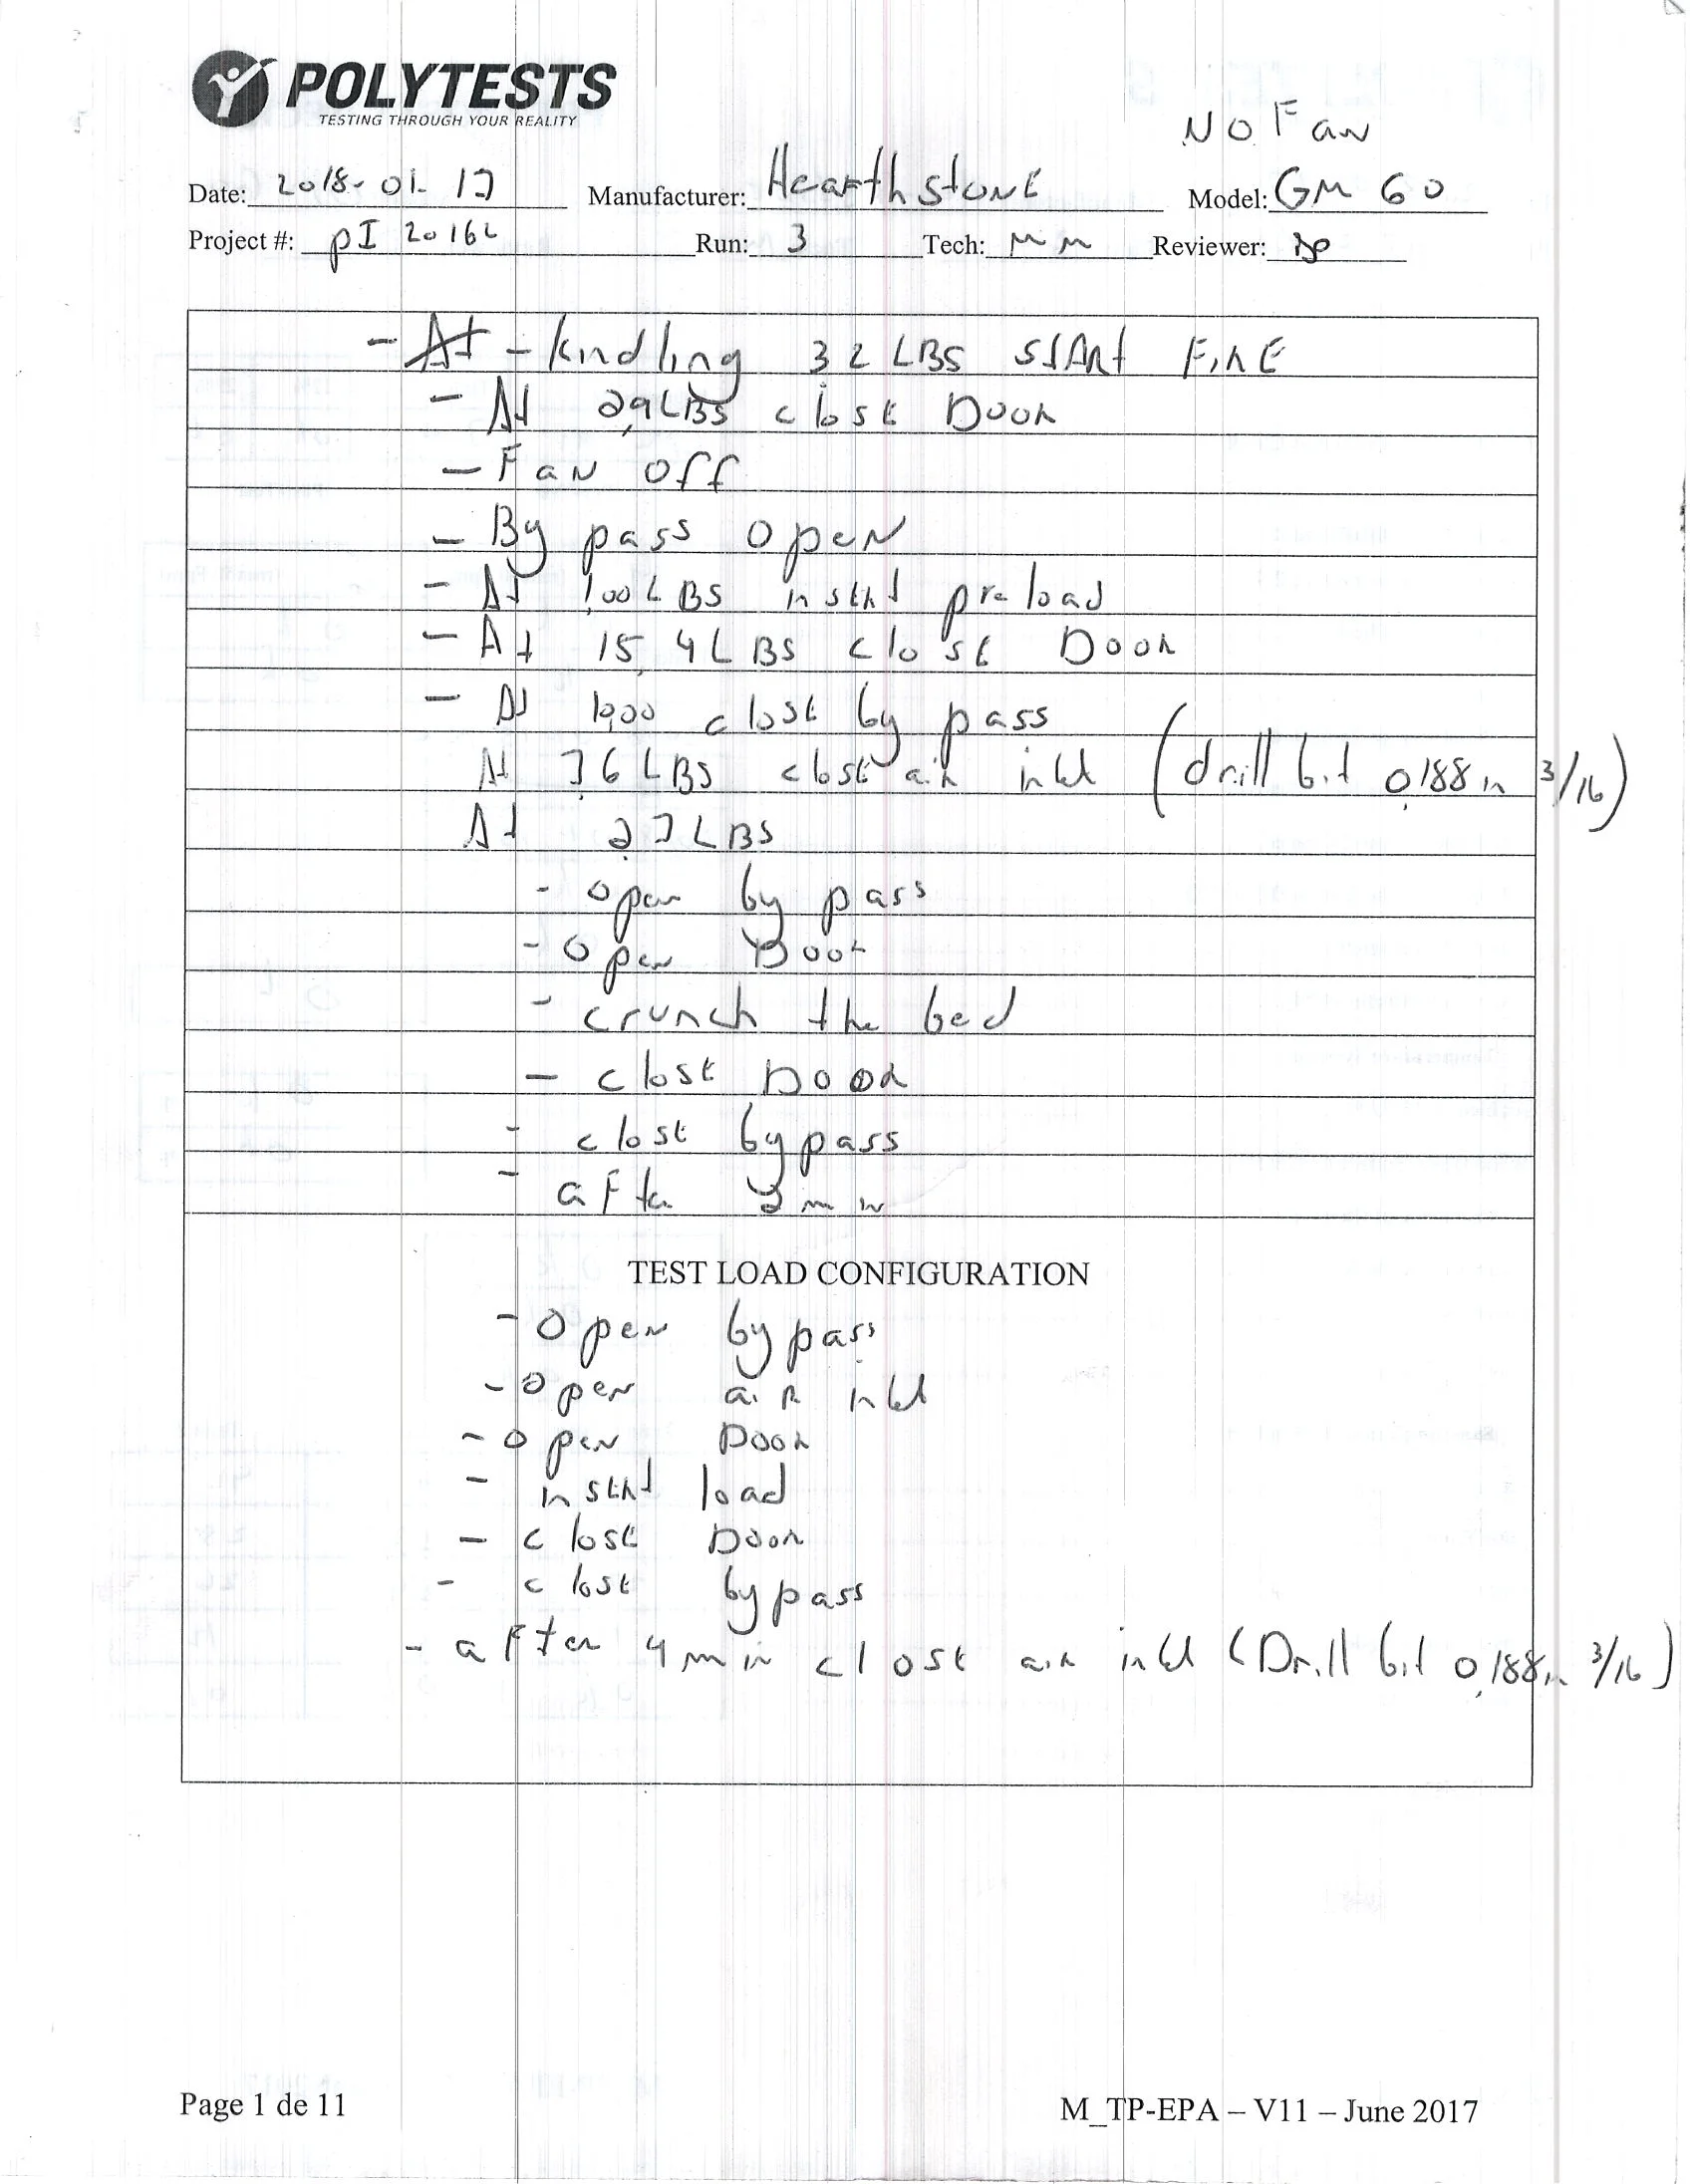 POLYTESTS
TESTING THROUGH YOUR REALITY
NO Fan
Date: 2018-01-17 Manufacturer: HearthstonE Model: GM 60
Project #: pI 20162 Run: 3 Tech: MM Reviewer:
- At - kindling 3 2 LBS StARt FiRE
- At 2,9 LBS closE DooR
- Fan off
- By pass open
- At 1,00 LBS insert preload
- At 15,4 LBS closE DooR
- At 10,00 closE by pass
At 7,6 LBS closE aiR inlet (drill bit 0,188 in 3/16)
At 2,7 LBS
- open by pass
- open Door
- crunch the bed
- closE DooR
- closE by pass
- aFter 2 min
TEST LOAD CONFIGURATION
- Open by pass
- Open aiR inlet
- open DooR
- insert load
- closE DooR
- closE by pass
- aFter 4 min closE aiR inlet (Drill bit 0,188 in 3/16)
Page 1 de 11
M_TP-EPA – V11 – June 2017